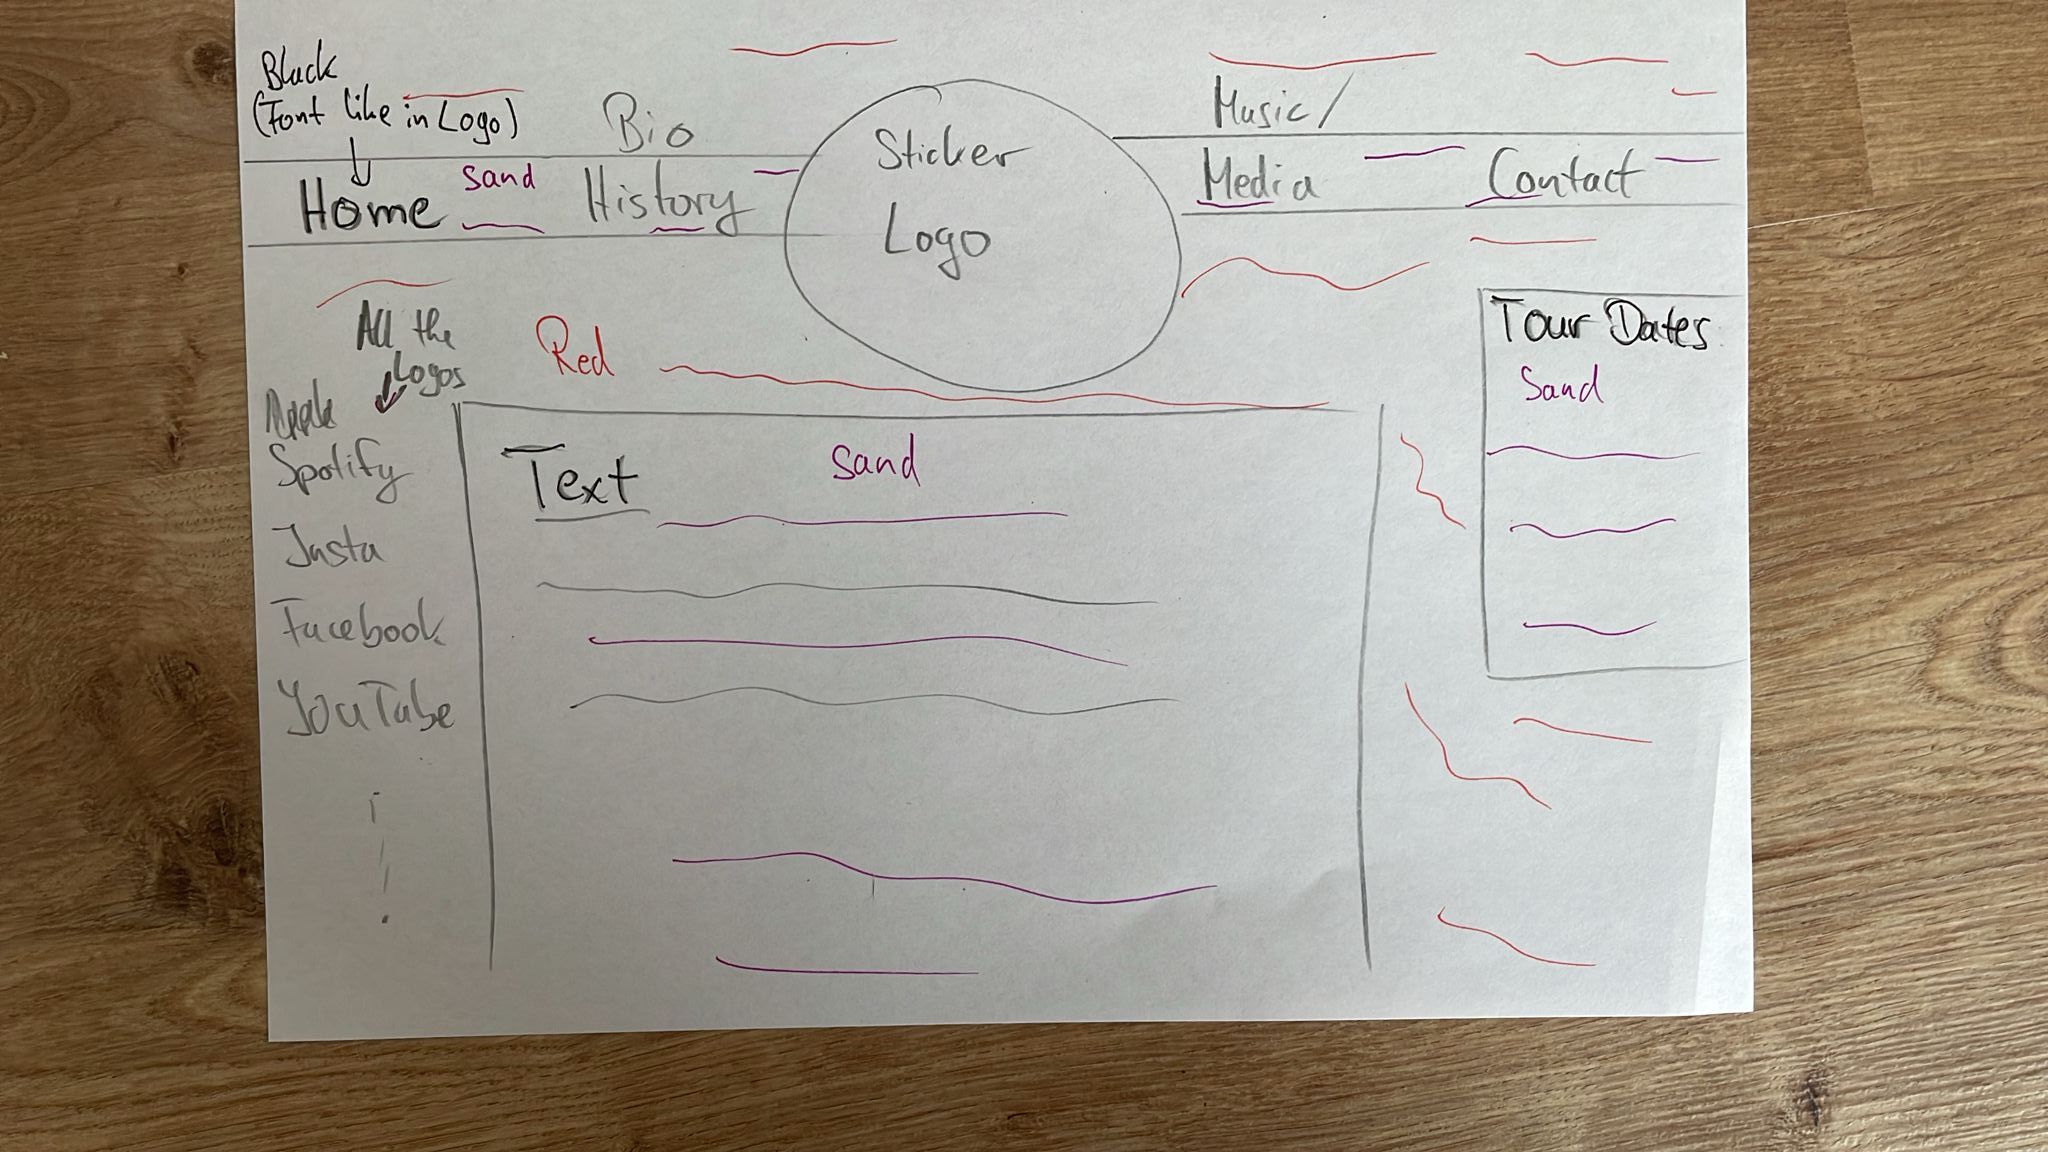 Black
(Font like in Logo)
Home
sand
Bio
History
Sticker
Logo
Music/
Media
Contact
All the
Logos
Apple
Spotify
Insta
Facebook
YouTube
Red
Text
sand
Tour Dates
Sand